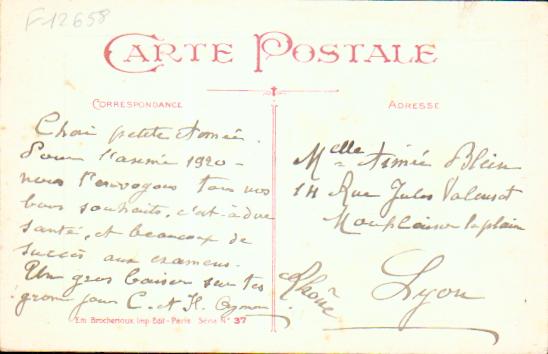 F12658
CARTE POSTALE
CORRESPONDANCE
ADRESSE
Chair petite Aimée.
Pour l'année 1920 -
nous t'envoyons tous nos
bons souhaits, c'est-à-dire
santé, et beaucoup de
succès aux examens.
Un gros baiser sur tes
grosses joues C. et H.
Melle Aimée Blein
14 Rue Jules Valensot
Monplaisir la plaine
Lyon
Rhône
Em. Brocherioux, Imp-Edit - Paris Série N° 37